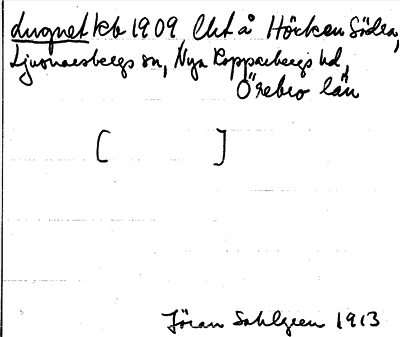 Lugnet kb 1909 Lht å Hörken Södra,
Ljusnarsbergs sn, Nya Kopparbergs hd,
Örebro län
[ ]
Jöran Sahlgren 1913